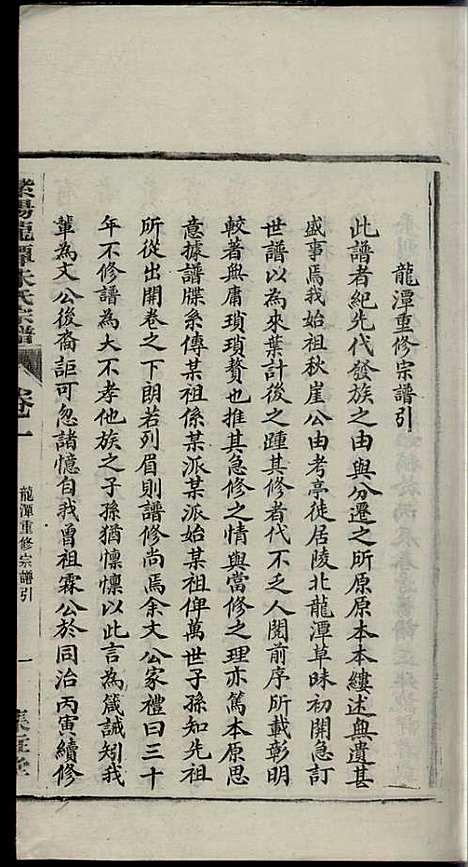 龍潭重修宗譜引
此譜者紀先代發族之由與分遷之所原原本本縷述無遺甚
盛事焉我始祖秋崖公由考亭徙居陵北龍潭草昧初開急訂
世譜以為來葉計後之踵其修者代不乏人閱前序所載彰明
較著無庸瑣瑣贅也推其急修之情與當修之理亦篤本原思
意據譜牒系傳某祖係某派某派始某祖俾萬世子孫知先祖
所從出開卷之下朗若列眉則譜修尚焉余文公家禮曰三十
年不修譜為大不孝他族之子孫猶懍懍以此言為箴誡矧我
輩為文公後裔詎可忽諸憶自我曾祖霖公於同治丙寅續修
紫陽龍潭朱氏宗譜
卷一
龍潭重修宗譜引
一